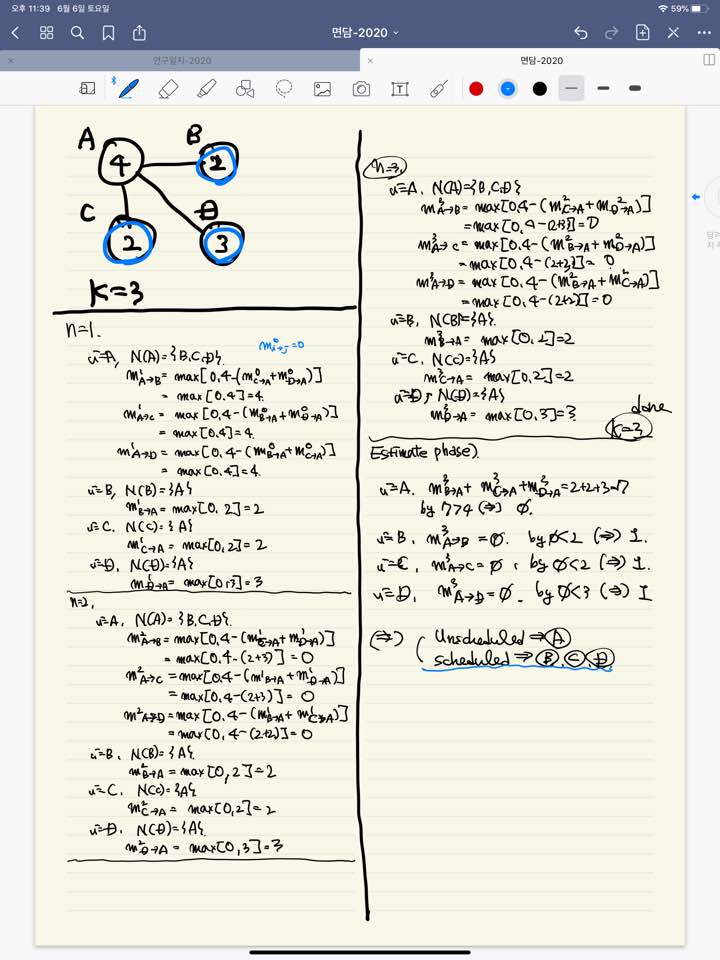 오후 11:39 6월 6일 토요일
59%
면담-2020
연구일지-2020
면담-2020
A
B
4
2
C
D
2
3
K=3
n=1.
u=A, N(A)={B,C,D}.
m⁰ᵢ→ⱼ=0
m¹A→B = max[0,4-(m⁰C→A+m⁰D→A)]
= max[0,4]=4.
m¹A→C = max[0,4-(m⁰B→A+m⁰D→A)]
= max[0,4]=4.
m¹A→D = max[0,4-(m⁰B→A+m⁰C→A)]
= max[0,4]=4.
u=B, N(B)={A}
m¹B→A = max[0,2]=2
u=C. N(C)={A}
m¹C→A = max[0,2]=2
u=D, N(D)={A}
m¹D→A = max[0,3]=3
n=2,
u=A, N(A)={B,C,D}.
m²A→B = max[0,4-(m¹C→A+m¹D→A)]
= max[0,4-(2+3)]=0
m²A→C = max[0,4-(m¹B→A+m¹D→A)]
= max[0,4-(2+3)]=0
m²A→D = max[0,4-(m¹B→A+m¹C→A)]
= max[0,4-(2+2)]=0
u=B. N(B)={A}.
m²B→A = max[0,2]=2
u=C. N(C)={A}
m²C→A = max[0,2]=2
u=D. N(D)={A}.
m²D→A = max[0,3]=3
n=3,
u=A. N(A)={B,C,D}
m³A→B = max[0,4-(m²C→A+m²D→A)]
=max[0,4-2+3)]=0
m³A→C = max[0,4-(m²B→A+m²D→A)]
=max[0,4-(2+3)]=0
m³A→D = max[0,4-(m²B→A+m²C→A)]
=max[0,4-(2+2)]=0
u=B, N(B)={A}.
m³B→A = max[0,2]=2
u=C. N(C)={A}
m³C→A = max[0,2]=2
u=D, N(D)={A}
m³D→A = max[0,3]=3.
done
K=3
Estimate phase).
u=A. m³B→A+m³C→A+m³D→A=2+2+3=7
by 7>4 (⇒) ∅.
u=B, m³A→B=∅. by ∅<2 (⇒) 1.
u=C, m³A→C=∅, by ∅<2 (⇒) 1.
u=D, m³A→D=∅. by ∅<3 (⇒) 1
(⇒) ( Unscheduled ⇒ A
scheduled ⇒ B, C, D